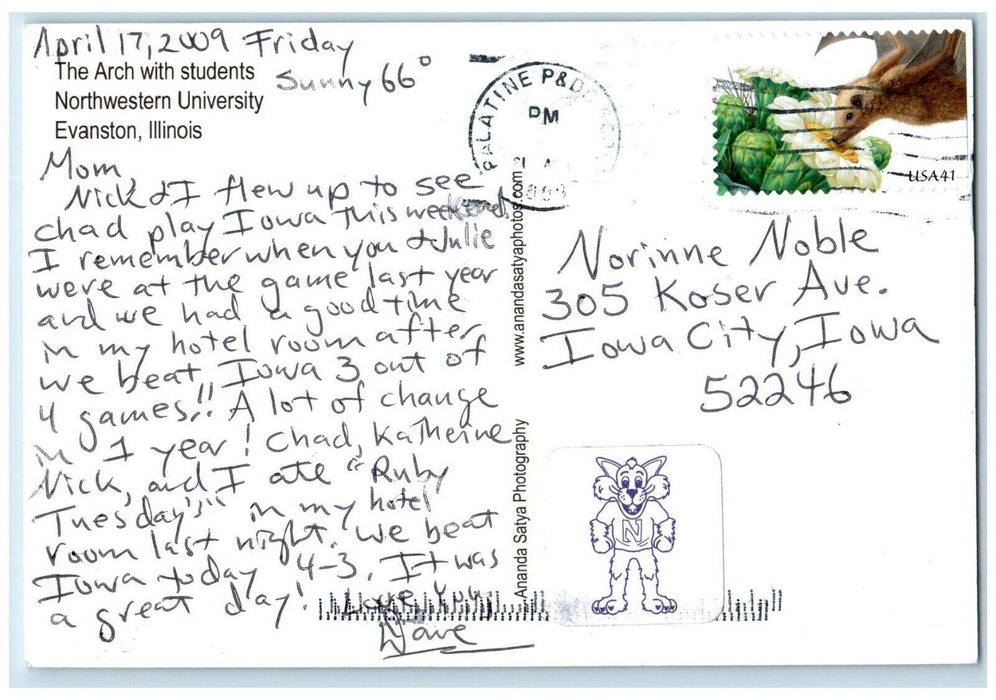 April 17, 2009 Friday
Sunny 66°
The Arch with students
Northwestern University
Evanston, Illinois
Mom,
Nick & I flew up to see
chad play Iowa this weekend.
I remember when you & Julie
were at the game last year
and we had a good time
in my hotel room after
we beat Iowa 3 out of
4 games!! A lot of change
in 1 year! Chad, Katherine
Nick, and I ate "Ruby
Tuesday's" in my hotel
room last night. We beat
Iowa today 4-3. It was
a great day! Love You,
Dave
Ananda Satya Photography
www.anandasatyaphotos.com
PALATINE P&D
PM
USA41
Norinne Noble
305 Koser Ave.
Iowa City, Iowa
52246
N